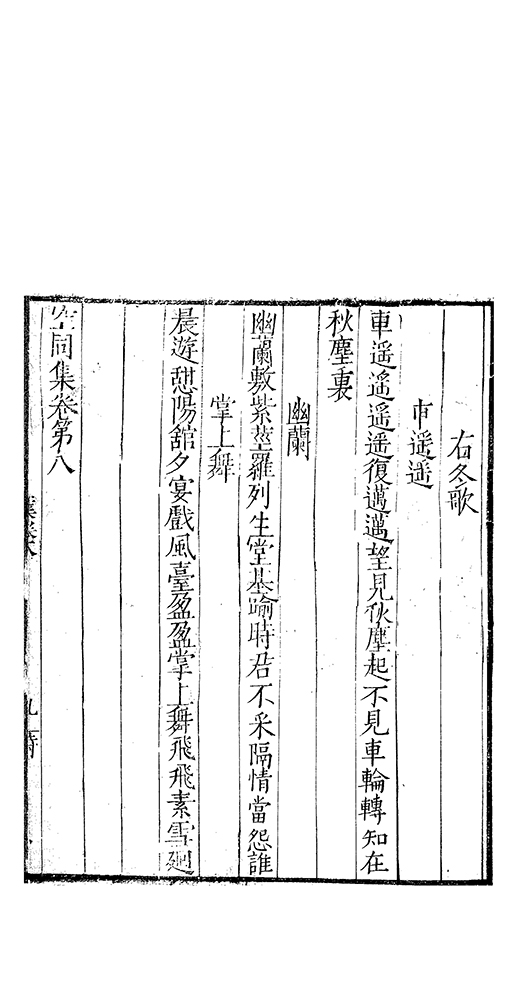 右冬歌
車遥遥
車遥遥遥遥復邁邁望見秋塵起不見車輪轉知在
秋塵裏
幽蘭
幽蘭敷紫莖羅列生堂基踰時君不采隔情當怨誰
掌上舞
晨遊憩陽舘夕宴戲風臺盈盈掌上舞飛飛素雪𢌞
空同集卷第八